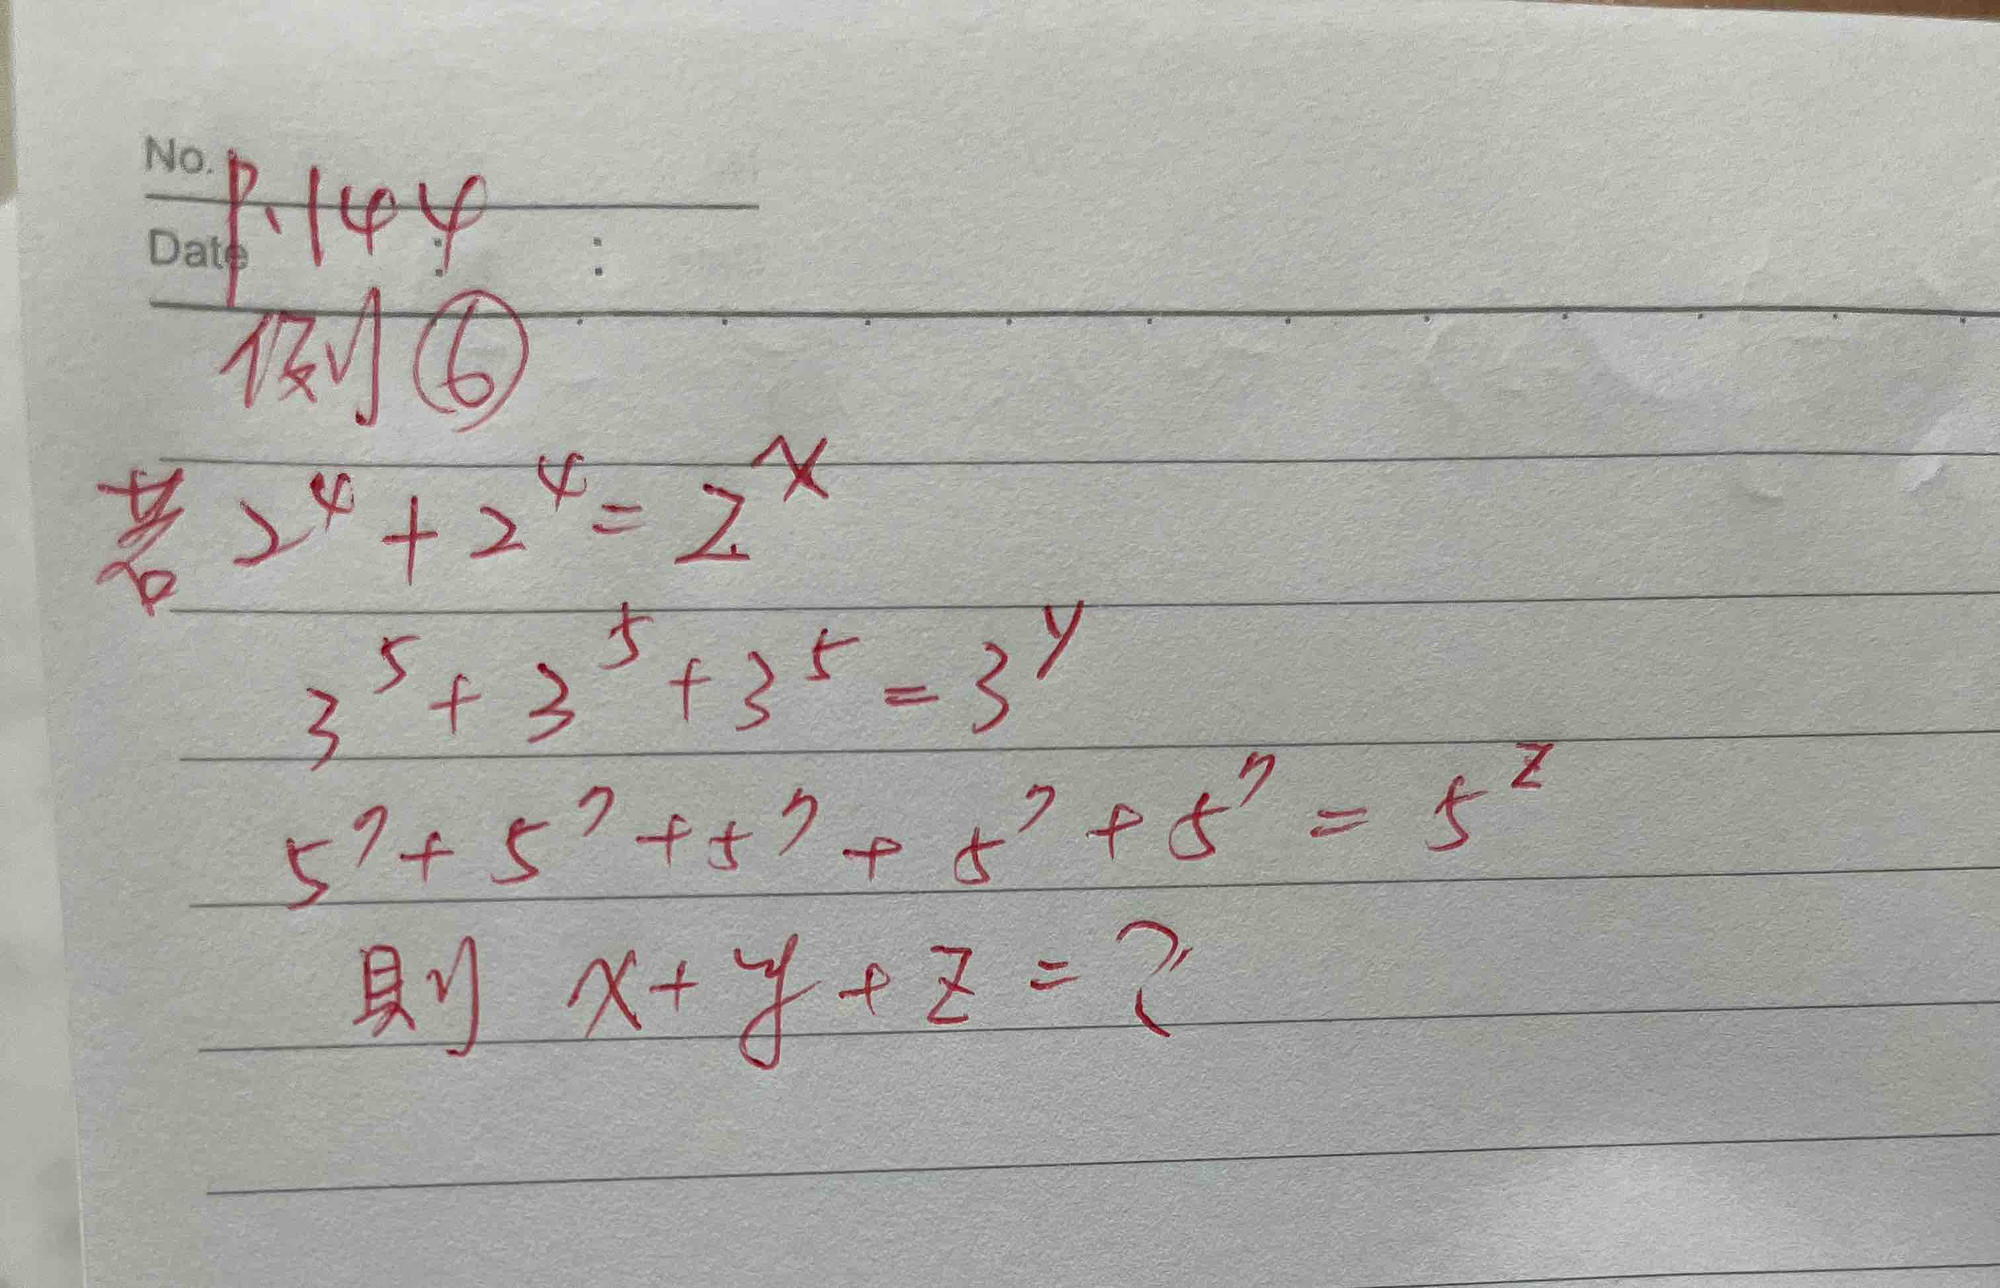 No. P.144
Date : :
例⑥
若 2⁴ + 2⁴ = 2ˣ
3⁵ + 3⁵ + 3⁵ = 3ʸ
5⁷ + 5⁷ + 5⁷ + 5⁷ + 5⁷ = 5ᶻ
則 x + y + z = ?